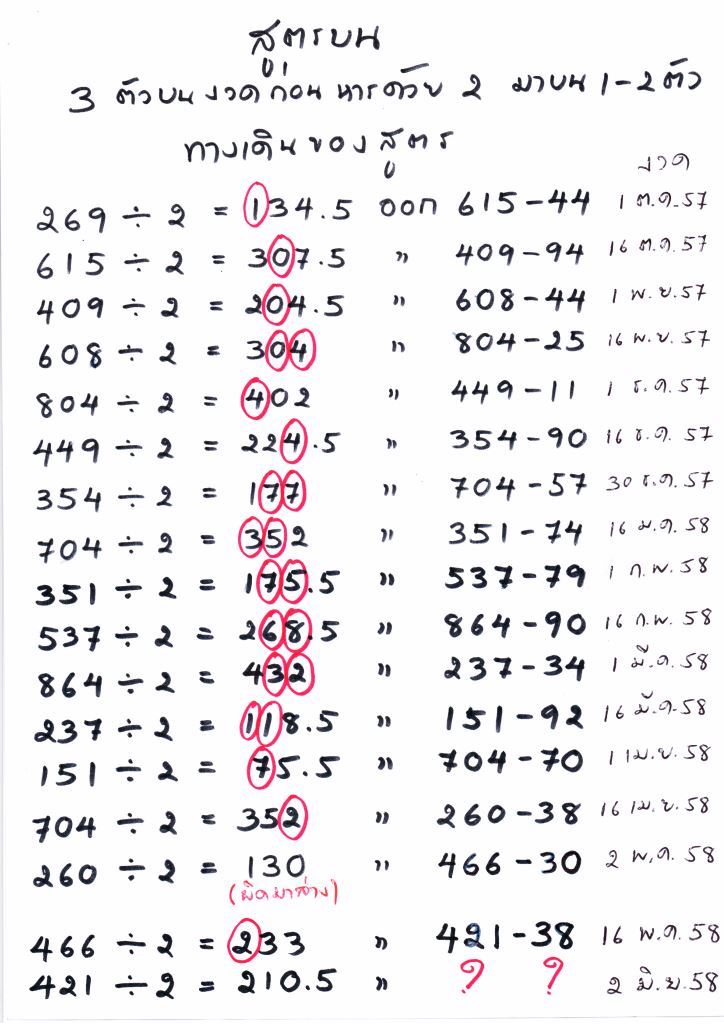 สูตรบน
3 ตัวบน งวดก่อน หารด้วย 2 มาบน 1-2 ตัว
ทางเดินของสูตร
งวด
269 ÷ 2 = 134.5 ออก 615-44 1 ต.ค.57
615 ÷ 2 = 307.5 " 409-94 16 ต.ค.57
409 ÷ 2 = 204.5 " 608-44 1 พ.ย.57
608 ÷ 2 = 304 " 804-25 16 พ.ย.57
804 ÷ 2 = 402 " 449-11 1 ธ.ค.57
449 ÷ 2 = 224.5 " 354-90 16 ธ.ค.57
354 ÷ 2 = 177 " 704-57 30 ธ.ค.57
704 ÷ 2 = 352 " 351-74 16 ม.ค.58
351 ÷ 2 = 175.5 " 537-79 1 ก.พ.58
537 ÷ 2 = 268.5 " 864-90 16 ก.พ.58
864 ÷ 2 = 432 " 237-34 1 มี.ค.58
237 ÷ 2 = 118.5 " 151-92 16 มี.ค.58
151 ÷ 2 = 75.5 " 704-70 1 เม.ย.58
704 ÷ 2 = 352 " 260-38 16 เม.ย.58
260 ÷ 2 = 130 " 466-30 2 พ.ค.58
(ผิดมาล่าง)
466 ÷ 2 = 233 " 421-38 16 พ.ค.58
421 ÷ 2 = 210.5 " ? ? 2 มิ.ย.58